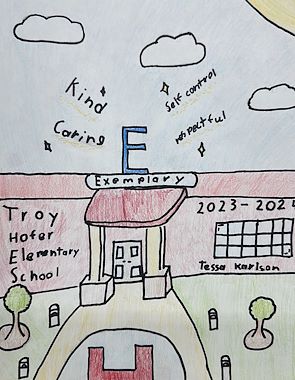 Kind
Self control
Caring
respectful
E
Exemplary
Troy
Hofer
Elementary
School
2023-2024
Tessa Karlson
H